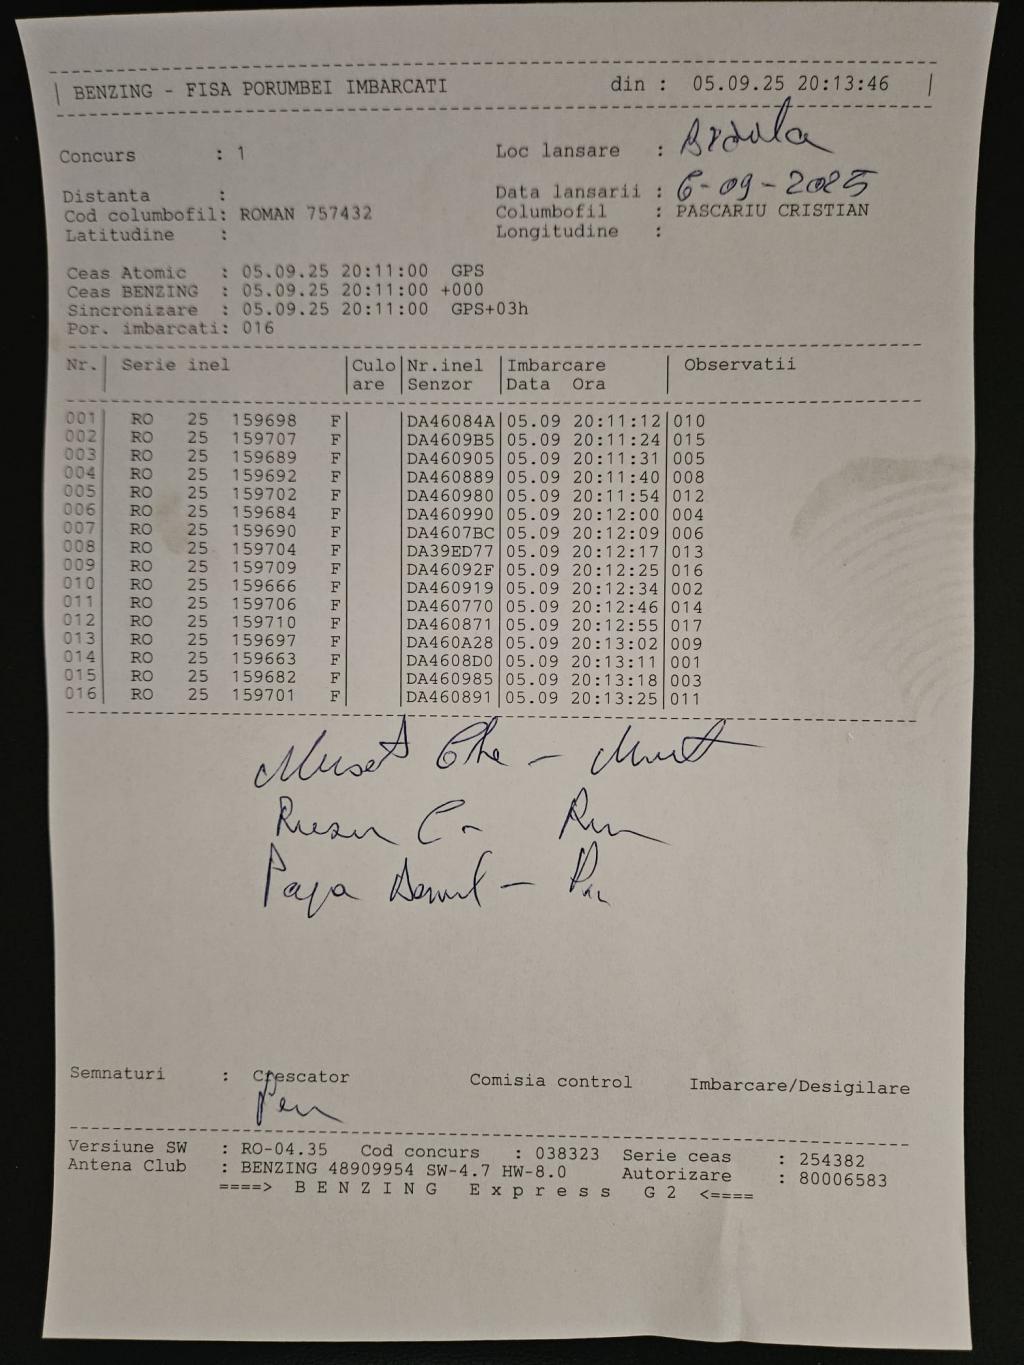 BENZING - FISA PORUMBEI IMBARCATI din : 05.09.25 20:13:46
Concurs : 1 Loc lansare :
Distanta : Data lansarii : 6-09-2025
Cod columbofil: ROMAN 757432 Columbofil : PASCARIU CRISTIAN
Latitudine : Longitudine :
Ceas Atomic : 05.09.25 20:11:00 GPS
Ceas BENZING : 05.09.25 20:11:00 +000
Sincronizare : 05.09.25 20:11:00 GPS+03h
Por. imbarcati: 016
Nr. Serie inel Culo Nr.inel Imbarcare Observatii
are Senzor Data Ora
001 RO 25 159698 F DA46084A 05.09 20:11:12 010
002 RO 25 159707 F DA4609B5 05.09 20:11:24 015
003 RO 25 159689 F DA460905 05.09 20:11:31 005
004 RO 25 159692 F DA460889 05.09 20:11:40 008
005 RO 25 159702 F DA460980 05.09 20:11:54 012
006 RO 25 159684 F DA460990 05.09 20:12:00 004
007 RO 25 159690 F DA4607BC 05.09 20:12:09 006
008 RO 25 159704 F DA39ED77 05.09 20:12:17 013
009 RO 25 159709 F DA46092F 05.09 20:12:25 016
010 RO 25 159666 F DA460919 05.09 20:12:34 002
011 RO 25 159706 F DA460770 05.09 20:12:46 014
012 RO 25 159710 F DA460871 05.09 20:12:55 017
013 RO 25 159697 F DA460A28 05.09 20:13:02 009
014 RO 25 159663 F DA4608D0 05.09 20:13:11 001
015 RO 25 159682 F DA460985 05.09 20:13:18 003
016 RO 25 159701 F DA460891 05.09 20:13:25 011
Semnaturi : Crescator Comisia control Imbarcare/Desigilare
Versiune SW : RO-04.35 Cod concurs : 038323 Serie ceas : 254382
Antena Club : BENZING 48909954 SW-4.7 HW-8.0 Autorizare : 80006583
====> B E N Z I N G E x p r e s s G 2 <====